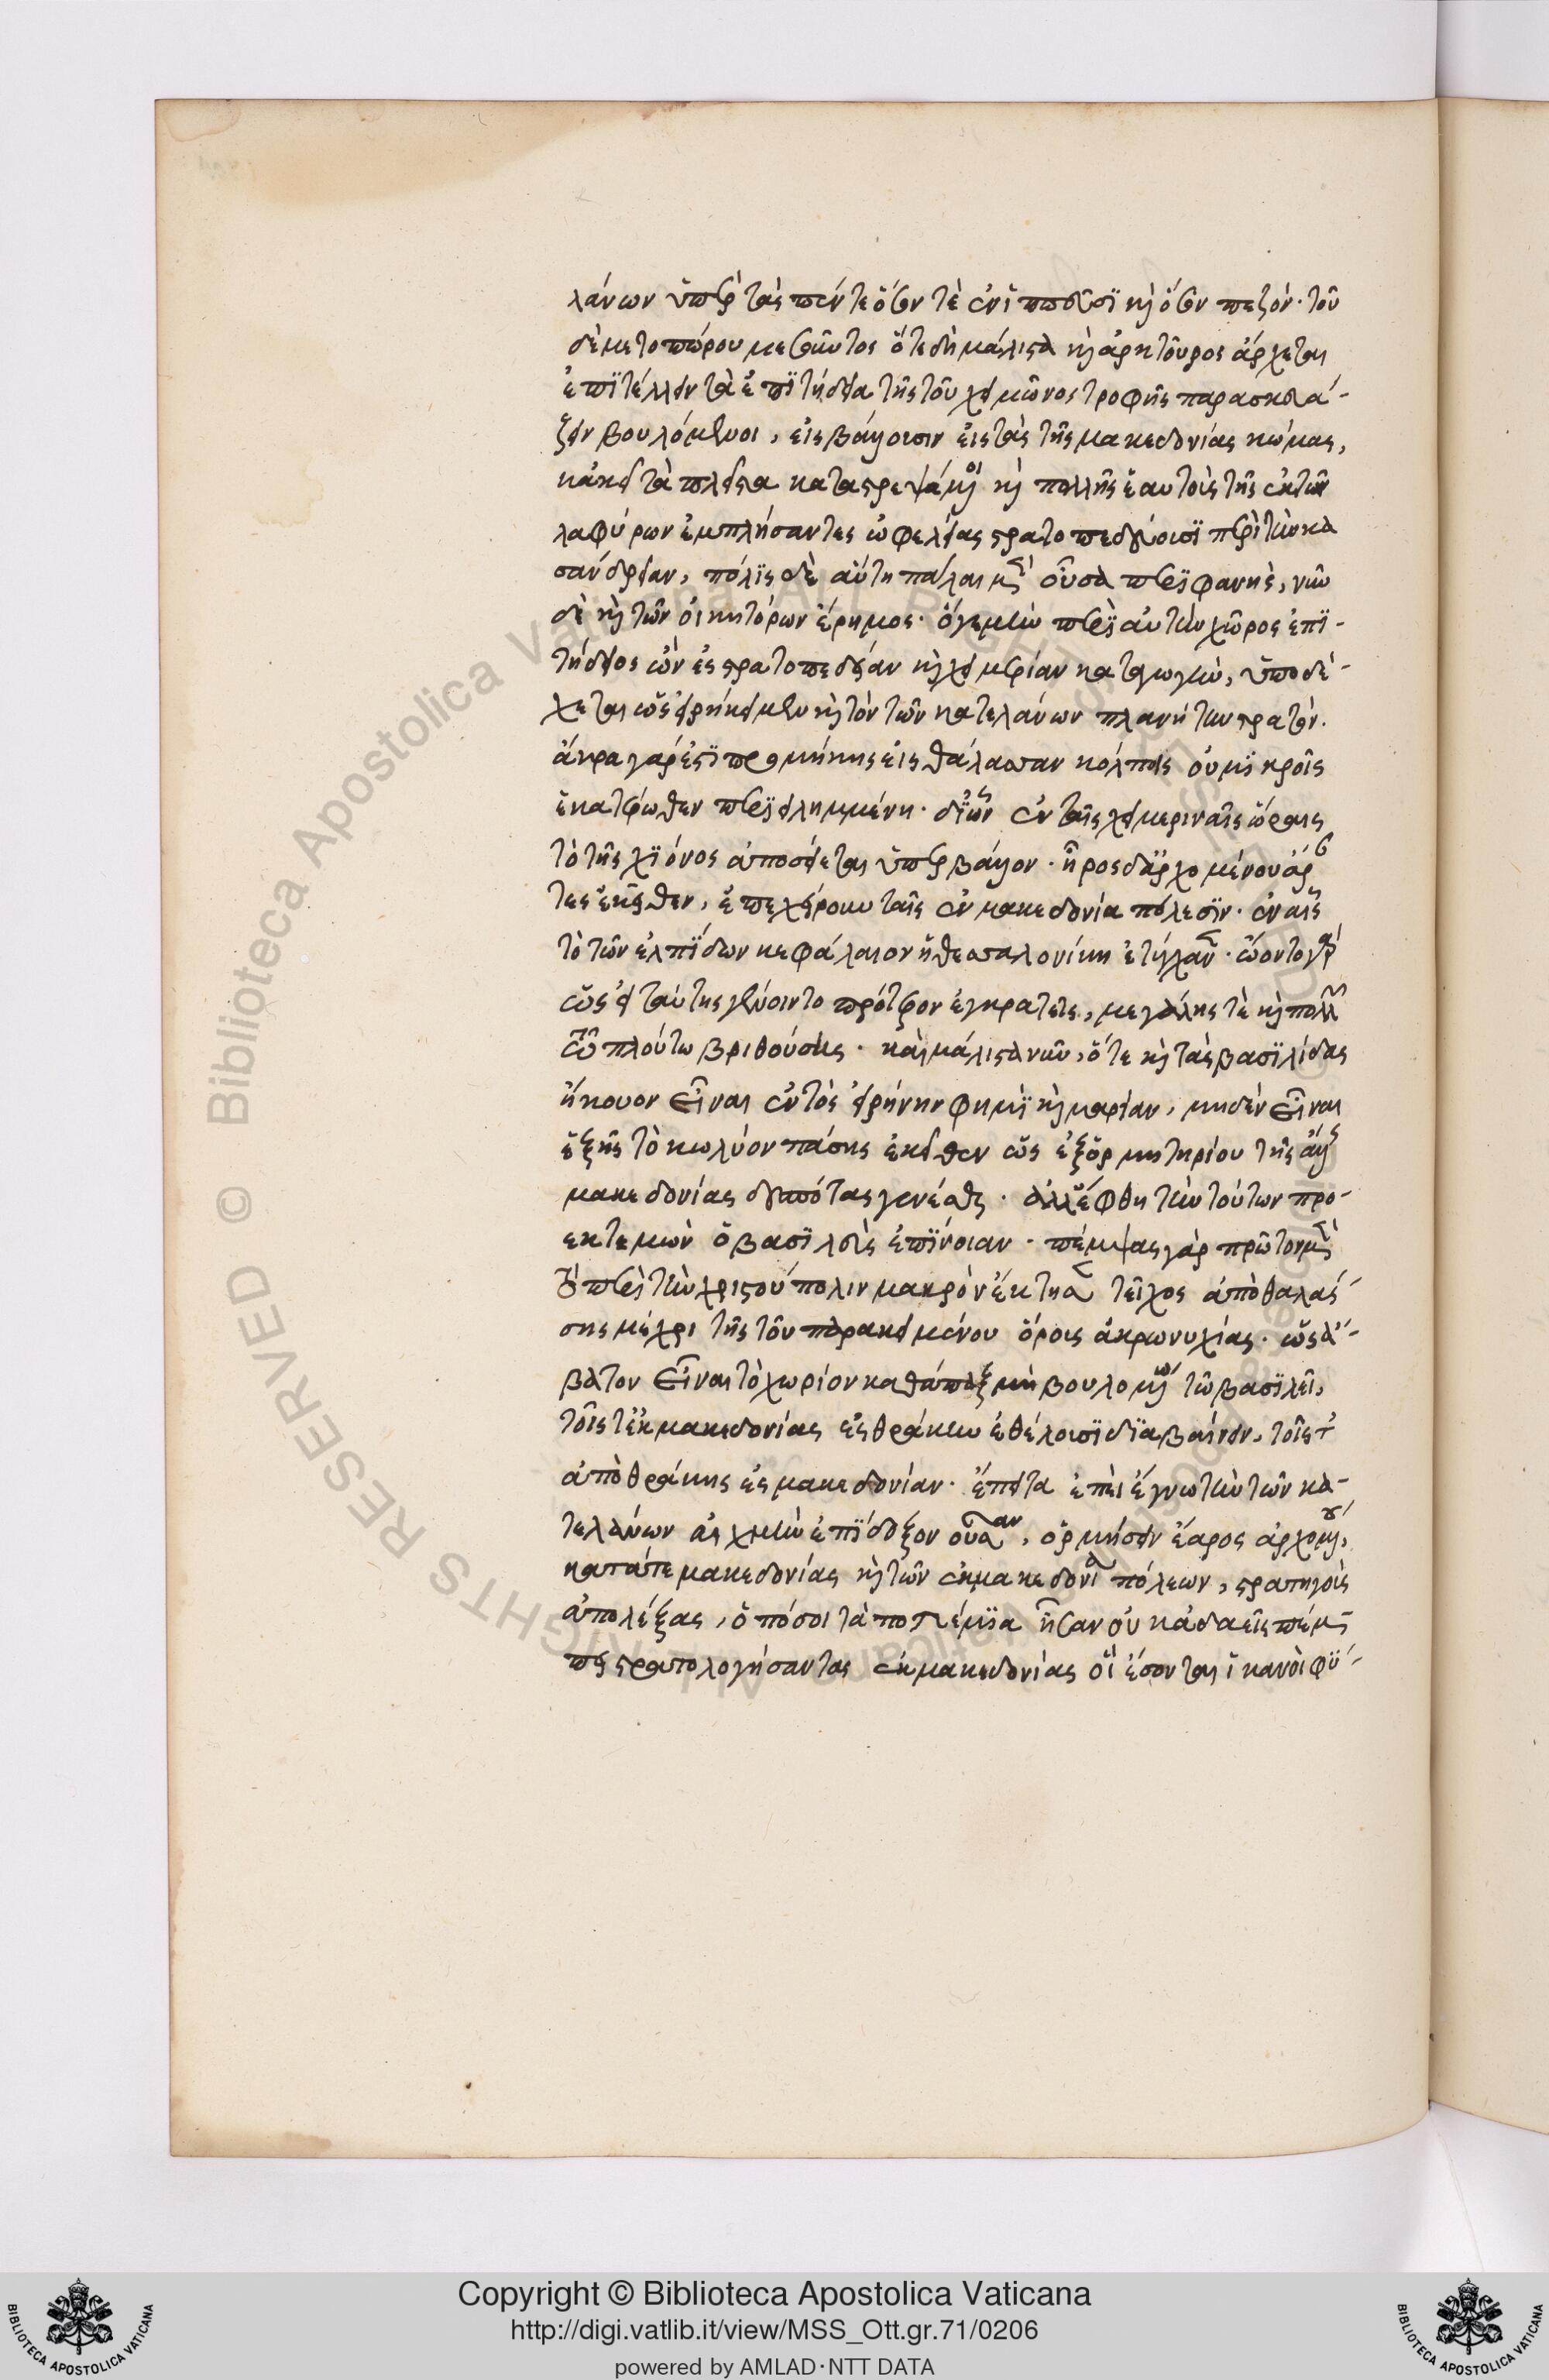 λάνων ὑπὲρ τὰς πέντε ὅσον τὲ ἐν ἱπποῦσι καὶ ὅσον πεζόν· τοῦ
δὲ μετοπώρου μεσοῦντος ὅτε δὴ μάλιστα καὶ ἀρκτοῦρος ἄρχεται
ἐπιτέλλειν τὰ ἐπιτήδεια τῆς τοῦ χειμῶνος τροφῆς παρασκευά-
ζειν βουλόμενοι, εἰσβάλουσιν εἰς τὰς τῆς μακεδονίας κώμας,
κἀκεῖ τὰ πλεῖστα καταστρεψάμενοι καὶ πολλῆς ἑαυτοὺς τῆς ἐκ τῶν
λαφύρων ἐμπλήσαντες ὠφελείας στρατοπεδεύουσι περὶ τὴν κα
σάνδρειαν, πόλις δὲ αὕτη πάλαι μὲν οὖσα περιφανὴς, νῦν
δὲ καὶ τῶν οἰκητόρων ἔρημος· ὅγε μὴν περὶ αὐτὴν χῶρος ἐπι-
τήδειος ὢν ἐς στρατοπεδείαν καὶ χειμερίαν καταγωγὴν, ὑποδέ-
χεται ὡς εἰρήκειμεν καὶ τὸν τῶν κατελάνων πλανήτην στρατόν.
ἄκρα γάρ ἐστι προμήκης εἰς θάλασσαν κόλποις οὐ μικροῖς
ἑκατέρωθεν περιειλημμένη· δι' ὧν ἐν ταῖς χειμεριναῖς ὥραις
τὸ τῆς χιόνος ἀποσείεται ὑπερβάλον· ἦρος δ' ἀρχομένου ἄραν
τες ἐκεῖθεν, ἐπεχείρουν ταῖς ἐν μακεδονία πόλεσιν· ἐν αἷς
τὸ τῶν ἐλπίδων κεφάλαιον ἡ θεσσαλονίκη ἐτύγχανεν· ὤοντο γὰρ
ὡς εἰ ταύτης γένοιντο πρότερον ἐγκρατεῖς, μεγάλης τὲ καὶ πολλῶ
τῶ πλούτω βριθούσης· καὶ μάλιστα νῦν, ὅτε καὶ τὰς βασιλίδας
ἤκουον εἶναι ἐντὸς εἰρήνην φημὶ καὶ μαρίαν, μηδὲν εἶναι
ἑξῆς τὸ κωλύον πάσης ἐκεῖθεν ὡς ἐξ ὁρμητηρίου τῆς ἄλλης
μακεδονίας δεσπότας γενέσθαι· ἀλλ' ἔφθη τὴν τούτων προ-
εκτεμὼν ὁ βασιλεὺς ἐπίνοιαν· πέμψας γὰρ πρῶτον μὲν
τὸ περὶ τὴν χριστούπολιν μακρὸν ἔκτησε τεῖχος ἀπὸ θαλάσ-
σης μέχρι τῆς τοῦ παρακειμένου ὄρους ἀκρωνυχίας· ὡς ἄ-
βατον εἶναι τὸ χωρίον καθάπαξ μὴ βουλομένω τῶ βασιλεῖ,
τοῖς τ' ἐκ μακεδονίας εἰς θράκην ἐθέλουσι διαβαίνειν, τοῖς τ'
ἀπὸ θράκης ἐς μακεδονίαν· ἔπειτα ἐπεὶ ἔγνω τὴν τῶν κα-
τελάνων αἰχμὴν ἐπίδοξον οὖσαν, ὁρμήσειν ἔαρος ἀρχομένου,
κατάτε μακεδονίας καὶ τῶν ἐν μακεδονία πόλεων, στρατηγοὺς
ἀπολέξας, ὁπόσοι τὰ πολέμια ἦσαν οὐκ ἀδαεῖς πέμ-
πει στρατολογήσαντας ἐκ μακεδονίας οἳ ἔσονται ἱκανοὶ φυ-
Copyright © Biblioteca Apostolica Vaticana
http://digi.vatlib.it/view/MSS_Ott.gr.71/0206
powered by AMLAD·NTT DATA